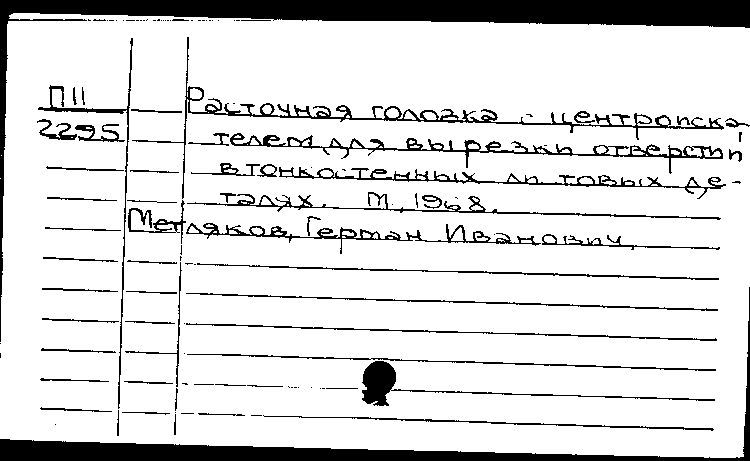 П11
2295
Расточная головка с центроиска
телем для вырезки отверстий
в тонкостенных листовых де-
талях. М., 1968.
Метляков, Герман Иванович.